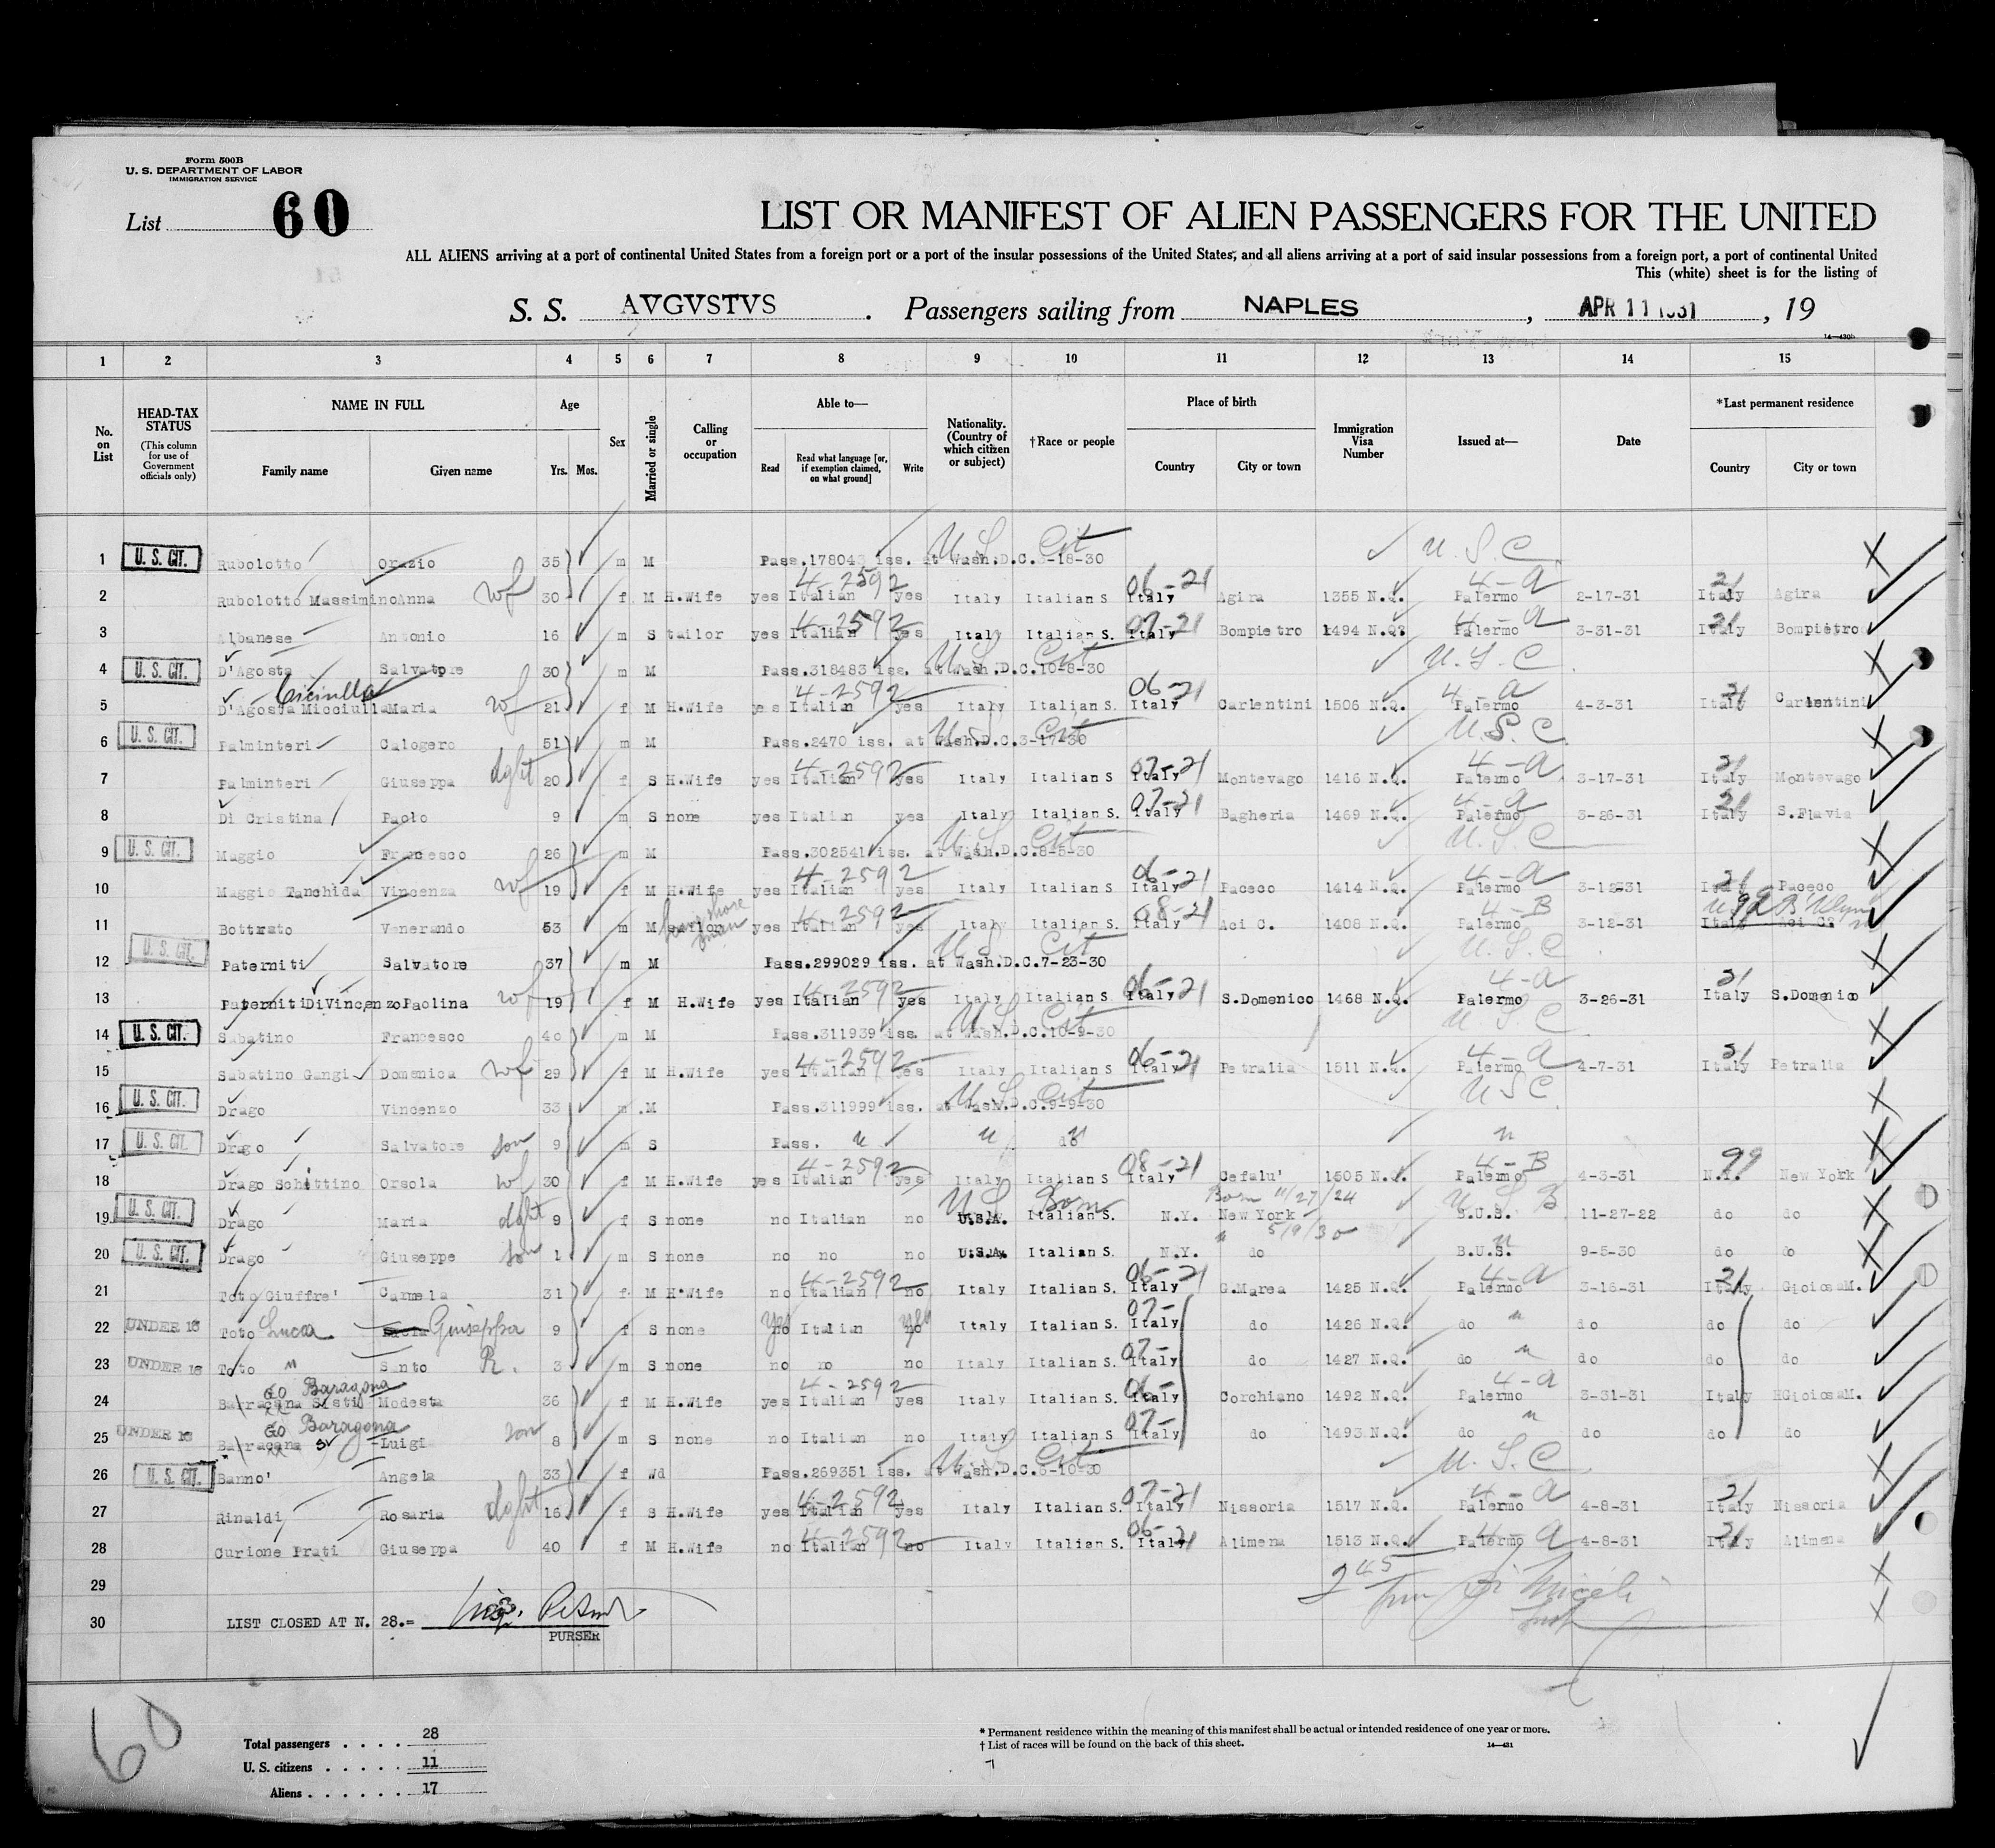 Form 500B
U. S. DEPARTMENT OF LABOR
IMMIGRATION SERVICE
List 60
LIST OR MANIFEST OF ALIEN PASSENGERS FOR THE UNITED
ALL ALIENS arriving at a port of continental United States from a foreign port or a port of the insular possessions of the United States, and all aliens arriving at a port of said insular possessions from a foreign port, a port of continental United
This (white) sheet is for the listing of
S. S. AVGVSTVS . Passengers sailing from NAPLES , APR 11 1931 , 19
14—430b
1 2 3 4 5 6 7 8 9 10 11 12 13 14 15
No. on List
HEAD-TAX STATUS (This column for use of Government officials only)
NAME IN FULL Family name Given name
Age Yrs. Mos.
Sex
Married or single
Calling or occupation
Able to— Read Read what language [or, if exemption claimed, on what ground] Write
Nationality. (Country of which citizen or subject)
† Race or people
Place of birth Country City or town
Immigration Visa Number
Issued at—
Date
*Last permanent residence Country City or town
1 U. S. CIT. Rubolotto Orazio 35 m M Pass.178043 iss. at Wash.D.C. 18-30 U S Cit U. S. C
2 Rubolotto Massimino Anna wf 30 f M H.Wife yes Italian 4-2592 yes Italy Italian S Italy 06-21 Agira 1355 N.Q. Palermo 4-a 2-17-31 Italy 21 Agira
3 Albanese Antonio 16 m S tailor yes Italian 4-2592 yes Italy Italian S. Italy 07-21 Bompietro 1494 N.Q. Palermo 4-a 3-31-31 Italy 21 Bompietro
4 U. S. CIT. D'Agosta Salvatore 30 m M Pass.318483 iss. at Wash.D.C.10-8-30 U S Cit U. S. C.
5 D'Agosta Micciulla Ciciulla Maria wf 21 f M H.Wife yes Italian 4-2592 yes Italy Italian S. Italy 06-21 Carlentini 1506 N.Q. Palermo 4-a 4-3-31 Italy 21 Carlentini
6 U. S. CIT. Palminteri Calogero 51 m M Pass.2470 iss. at Wash.D.C.3-17-30 U S Cit U. S. C.
7 Palminteri Giuseppa dght 20 f S H.Wife yes Italian 4-2592 yes Italy Italian S Italy 07-21 Montevago 1416 N.Q. Palermo 4-a 3-17-31 Italy 21 Montevago
8 Di Cristina Paolo 9 m S none yes Italian yes Italy Italian S. Italy 07-21 Bagheria 1469 N.Q. Palermo 4-a 3-26-31 Italy 21 S.Flavia
9 U. S. CIT. Maggio Francesco 26 m M Pass.302541 iss. at Wash.D.C.8-5-30 U S Cit U. S. C
10 Maggio Tanchida Vincenza wf 19 f M H.Wife yes Italian 4-2592 yes Italy Italian S Italy 06-21 Paceco 1414 N.Q. Palermo 4-a 3-12-31 Italy 21 Paceco
11 Bottrato Venerando 53 m M yes Italian 4-2592 yes Italy Italian S. Italy 08-21 Aci C. 1408 N.Q. Palermo 4-B 3-12-31 Italy Aci C.
12 U. S. CIT. Paterniti Salvatore 37 m M Pass.299029 iss. at Wash.D.C.7-23-30 U S Cit U. S. C.
13 Paterniti DiVincenzo Paolina wf 19 f M H.Wife yes Italian 4-2592 yes Italy Italian S Italy 06-21 S.Domenico 1468 N.Q. Palermo 4-a 3-26-31 Italy 21 S.Domenico
14 U. S. CIT. Sabatino Francesco 40 m M Pass.311939 iss. at Wash.D.C.10-9-30 U S Cit U S C
15 Sabatino Gangi Domenica wf 29 f M H.Wife yes Italian 4-2592 yes Italy Italian S Italy 06-21 Petralia 1511 N.Q. Palermo 4-a 4-7-31 Italy 21 Petralia
16 U. S. CIT. Drago Vincenzo 33 m M Pass.311999 iss. at Wash.D.C.9-9-30 U S Cit U S C
17 U. S. CIT. Drago Salvatore son 9 m S Pass. " " do "
18 Drago Schittino Orsola wf 30 f M H.Wife yes Italian 4-2592 yes Italy Italian S Italy 08-21 Cefalu' 1505 N.Q. Palermo 4-B 4-3-31 N.Y. 99 New York
19 U. S. CIT. Drago Maria dght 9 f S none no Italian no U.S.A. Italian S. U S Born N.Y. New York Born 11/27/24 B.U.S. U S B 11-27-22 do do
20 U. S. CIT. Drago Giuseppe son 1 m S none no no no U.S.A. Italian S. N.Y. do " 5/9/30 B.U.S. " 9-5-30 do do
21 Toto Giuffre' Carmela 31 f M H.Wife no Italian 4-2592 no Italy Italian S. Italy 06-21 G.Marea 1425 N.Q. Palermo 4-a 3-16-31 Italy 21 GioiosaM.
22 UNDER 16 Toto Luca Giuseppa 9 f S none no yes Italian no yes Italy Italian S. Italy 07- do 1426 N.Q. do " do do do
23 UNDER 16 Toto " Santo R. 3 m S none no no no Italy Italian S. Italy 07- do 1427 N.Q. do " do do do
24 Barracana Sisti GO Baragona Modesta 36 f M H.Wife yes Italian 4-2592 yes Italy Italian S. Italy 06- Corchiano 1492 N.Q. Palermo 4-a 3-31-31 Italy GioiosaM.
25 UNDER 16 Barracana GO Baragona Luigi son 8 m S none no Italian no Italy Italian S Italy 07- do 1493 N.Q. do " do do do
26 U. S. CIT. Banno' Angela 33 f Wd Pass.269351 iss. at Wash.D.C. 10-30 U S Cit U. S. C
27 Rinaldi Rosaria dght 16 f S H.Wife yes Italian 4-2592 yes Italy Italian S. Italy 07-21 Nissoria 1517 N.Q. Palermo 4-a 4-8-31 Italy 21 Nissoria
28 Curione Prati Giuseppa 40 f M H.Wife no Italian 4-2592 no Italy Italian S. Italy 06-21 Alimena 1513 N.Q. Palermo 4-a 4-8-31 Italy 21 Alimena
29 245
30 LIST CLOSED AT N. 28.=
PURSER
60
Total passengers . . . . 28
U. S. citizens . . . . . 11
Aliens . . . . . . 17
* Permanent residence within the meaning of this manifest shall be actual or intended residence of one year or more.
† List of races will be found on the back of this sheet.
14—431